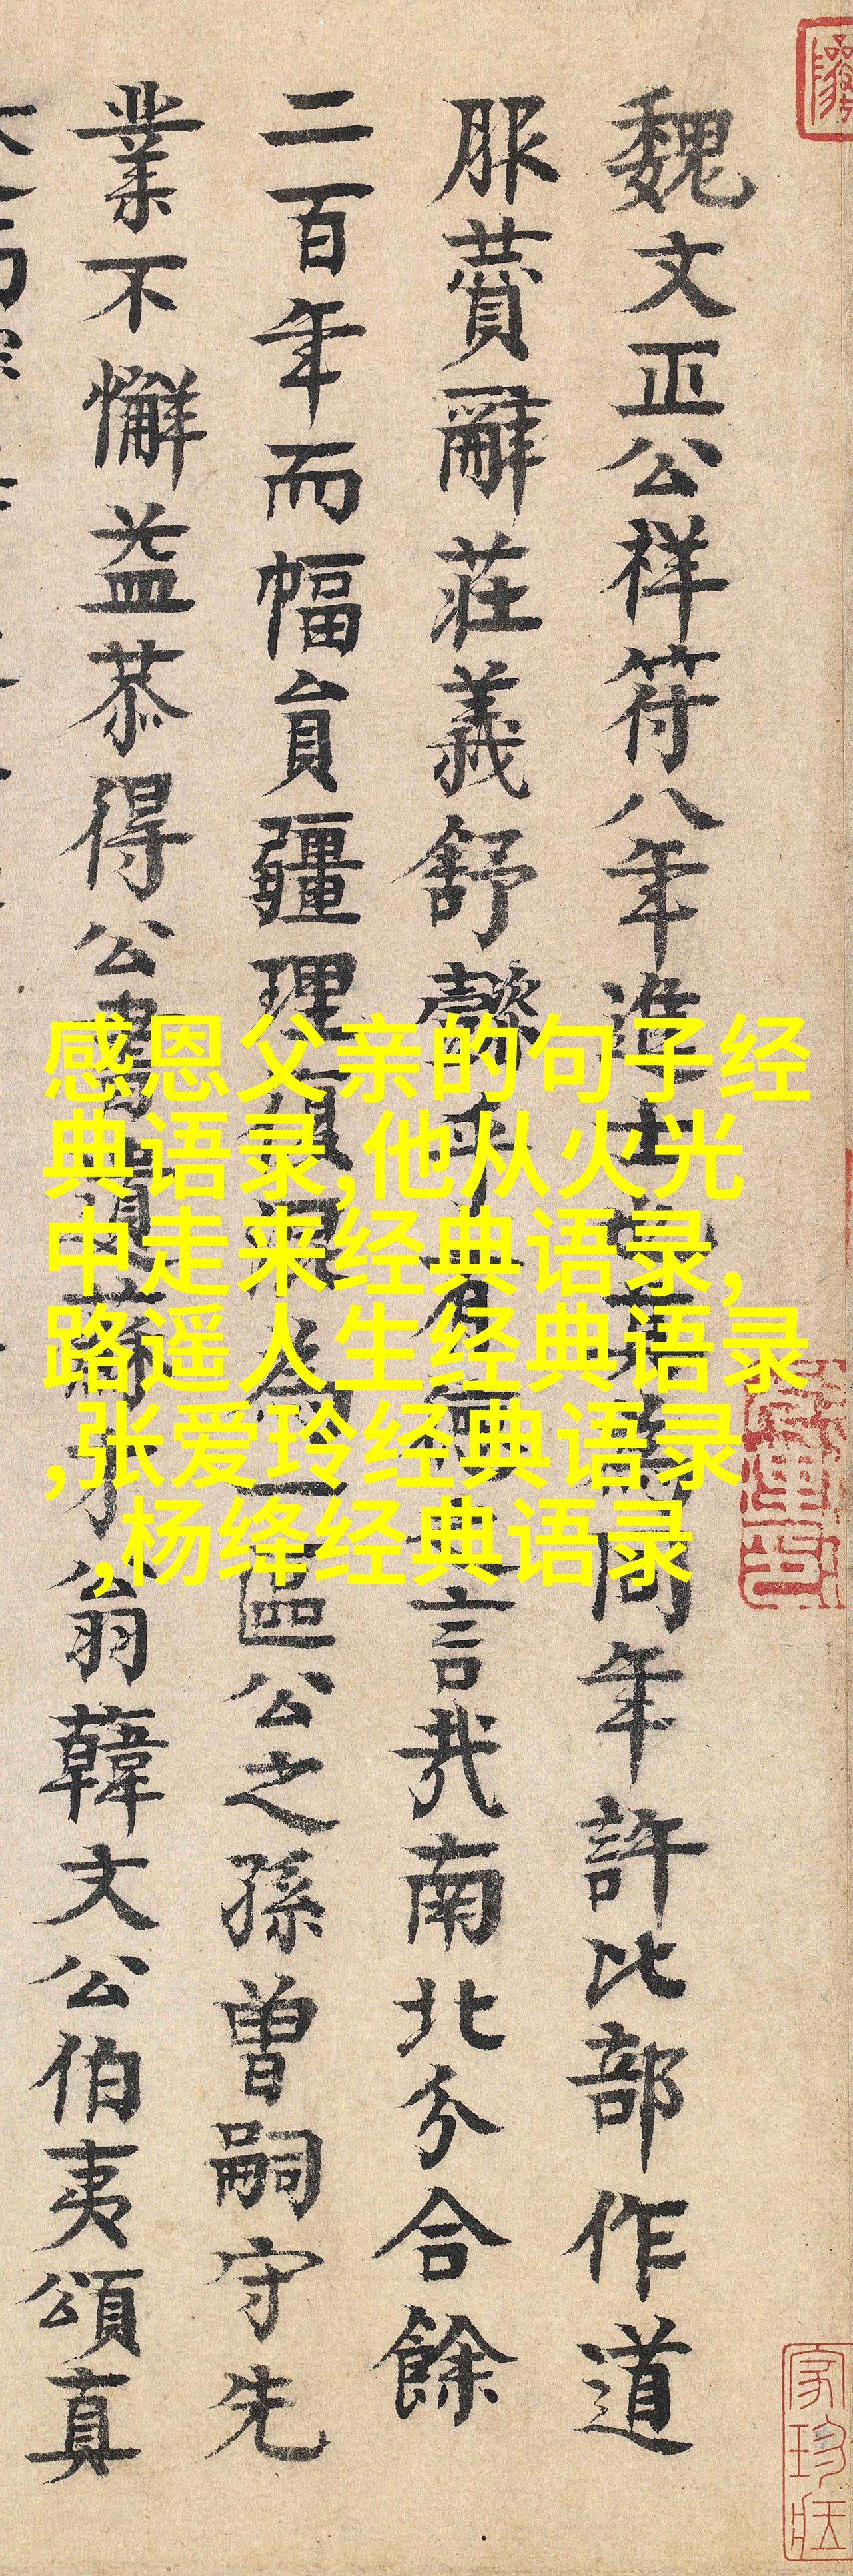 魏文正公祥符八年進士也其為同年許比部作道
服賛辭莊義舒乎有德言哉南北分合餘
二百年而幅員疆理俱混為一區公之孫曽嗣守先
業不懈益恭得公遺蘇才翁韓文公伯夷頌真
感恩父亲的句子经
典语录,他从火光
中走来经典语录,
路遥人生经典语录
,张爱玲经典语录
,杨绛经典语录